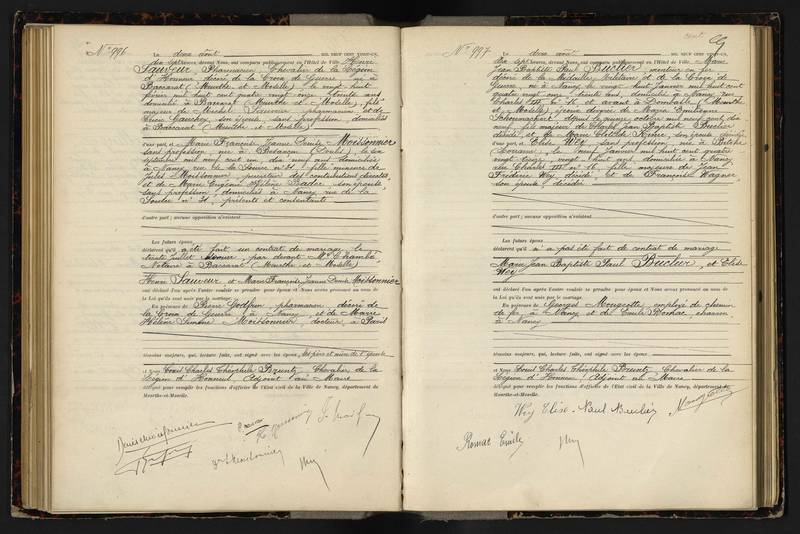 N° 996
Le deux août MIL NEUF CENT VINGT-UN,
dix sept heures, devant Nous, ont comparu publiquement en l'Hôtel de Ville Henri
Sauveur, Pharmacien, Chevalier de la Légion
d'Honneur décoré de la Croix de Guerre, né à
Baccarat (Meurthe et Moselle), le vingt huit
février mil huit cent quatre vingt onze trente ans
domicilié à Baccarat (Meurthe et Moselle), fils
majeur de Michel Sauveur pharmacien et de
Lucie Gauchey, son épouse, sans profession, domiciliés
à Baccarat (Meurthe et Moselle)
d'une part, et Marie Françoise Jeanne Denise Moissonnier
sans profession née à Besançon (Doubs) le six
septembre mil neuf cent un, dix neuf ans domiciliée
à Nancy, rue de la Source n° 31, fille mineure de
Jules Moissonnier, percepteur des contributions directes
et de Marie Eugénie Hélène Bader, son épouse,
sans profession, domiciliés à Nancy rue de la
Source n° 31, présents et consentants
d'autre part; aucune opposition n'existant
Les futurs époux
déclarent qu'il a été fait un contrat de mariage le
trente juillet dernier, par devant Me Chambé
Notaire à Baccarat (Meurthe et Moselle)
Henri Sauveur et Marie Françoise Jeanne Denise Moissonnier
ont déclaré l'un après l'autre vouloir se prendre pour époux et Nous avons prononcé au nom de
la Loi qu'ils sont unis par le mariage.
En présence de Pierre Godfrin, pharmacien, décoré de
la Croix de Guerre, à Nancy, et de Marie
Hélène Simone Moissonnier, docteur, à Paris
témoins majeurs, qui, lecture faite, ont signé avec les époux, les père et mère de l'épouse
et Nous Louis Charles Théophile Bruntz, Chevalier de la
Légion d'Honneur, Adjoint au Maire
délégué pour remplir les fonctions d'officier de l'État civil de la Ville de Nancy, département de
Meurthe-et-Moselle.
N° 997
Le deux août MIL NEUF CENT VINGT-UN,
dix sept heures, devant Nous, ont comparu publiquement en l'Hôtel de Ville Marie
Jean Baptiste Paul Bucher,
décoré de la Médaille Militaire et de la Croix de
Guerre, né à Nancy le vingt huit janvier mil huit cent
quatre vingt onze trente ans, domicilié à Nancy rue
Charles III et avant à Dombasle (Meurthe
et Moselle), veuf de Maria Emilienne
Schoumacker, depuis le quinze octobre mil neuf cent dix
neuf, fils majeur de Charles Jean Baptiste Bucher
décédé, et de Marie Clotilde, son épouse
d'une part, et Elise Wey, sans profession, née à
Lorraine, le janvier mil huit cent quatre
vingt treize, vingt huit ans, domiciliée à Nancy
rue Charles III, fille majeure de Jean
Frédéric Wey décédé et de Françoise Wagner
son épouse, décédée
d'autre part; aucune opposition n'existant
Les futurs époux
déclarent qu'il n'a pas été fait de contrat de mariage
Marie Jean Baptiste Paul Bucher, et Elise
Wey
ont déclaré l'un après l'autre vouloir se prendre pour époux et Nous avons prononcé au nom de
la Loi qu'ils sont unis par le mariage.
En présence de Georges Mougeotte, employé de chemin
de fer, à Nancy et de Emile Romac,
à Nancy
témoins majeurs, qui, lecture faite, ont signé avec les époux
et Nous Louis Charles Théophile Bruntz, Chevalier de la
Légion d'Honneur, Adjoint au Maire
délégué pour remplir les fonctions d'officier de l'État civil de la Ville de Nancy, département de
Meurthe-et-Moselle.
Wey Elise
Romac Emile